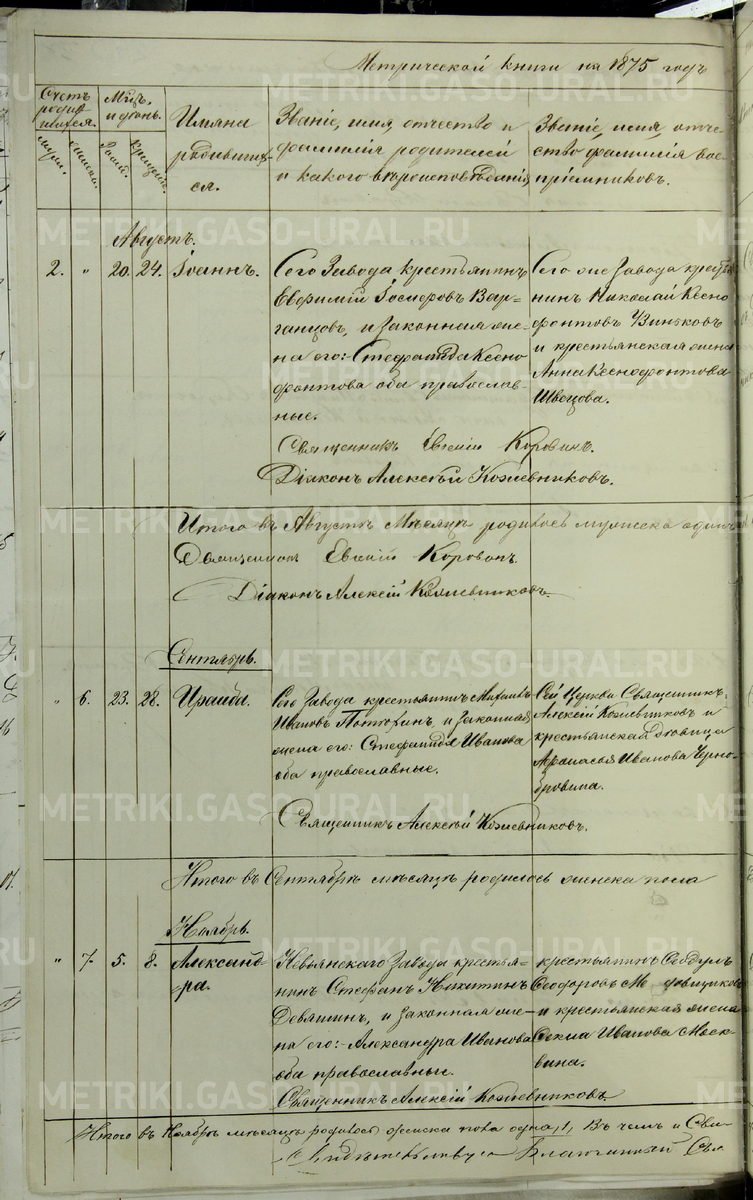 Метрической книги на 1875 годъ
Счетъ родившихся.
муж.
женск.
Мцъ. и день.
рожд.
крещен.
Имяна
родивших-
ся.
Званіе, имя, отчество и
фамилія родителей
и какого вѣроисповѣданія
Званіе, имя, отче-
ство фамилія вос-
пріемниковъ.
Августъ.
2. " 20. 24. Іоаннъ.
Сего Завода крестьянинъ
Евфимій Іосифовъ Вар-
ганцовъ, и законная же-
на его: Стефанида Ксено
фонтова оба православ-
ные.
Сего же Завода кресть
нинъ Николай Ксено
фонтовъ
и крестьянская жена
Анна Ксенофонтова
Швецова.
Священникъ Евгеній Коровинъ.
Діаконъ Алексѣй Кожевниковъ.
Итого въ Августѣ Мѣсяцѣ родилось мужеска одинъ
Священникъ Евгеній Коровинъ.
Діаконъ Алексій Кожевниковъ.
Сентябрь.
" 6. 23. 28. Ираида.
Сего Завода крестьянинъ Михаилъ
Ивановъ Потюринъ, и законная
жена его: Стефанида Иванова
оба православные.
Сей Церкви Священникъ
Алексій Кожевниковъ и
крестьянская вдовица
Афанасья Иванова Черно-
бровина.
Священникъ Алексѣй Кожевниковъ.
Итого въ Сентябрѣ мѣсяцѣ родилось женска пола
Ноябрь.
" 7. 5. 8. Александ-
ра.
Невьянскаго Завода крестья-
нинъ Стефанъ Никитинъ
Девяшинъ, и законная же-
на его: Александра Иванова
оба православные.
крестьянинъ
Феодоровъ
и крестьянская жена
Фекла Иванова Моск-
вина.
Священникъ Алексій Кожевниковъ.
Итого въ Ноябрѣ мѣсяцѣ родилось женска пола одна, 1, Въ чемъ и Сви-
Благочинный
METRIKI.GASO-URAL.RU